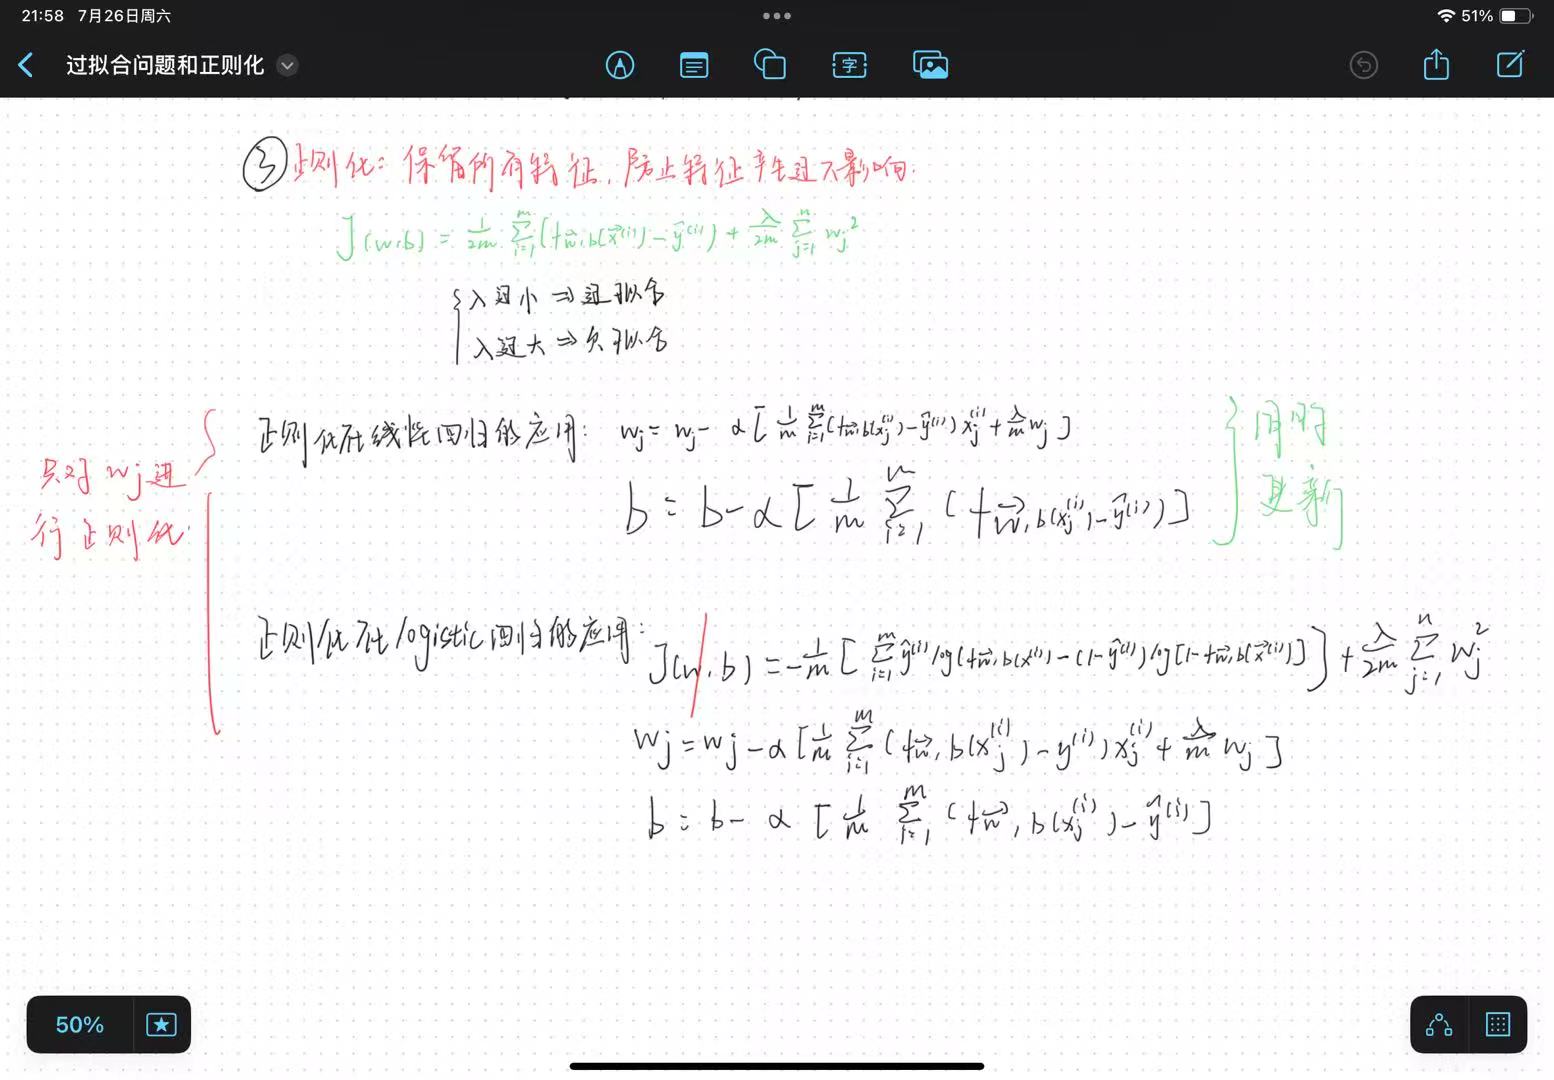 21:58 7月26日周六
51%
过拟合问题和正则化
字
③正则化：保留所有特征，防止特征产生过大影响.
J(w,b) = \frac{1}{2m} \sum_{i=1}^{m} (f_{\vec{w},b}(\vec{x}^{(i)}) - \hat{y}^{(i)}) + \frac{λ}{2m} \sum_{j=1}^{n} w_j^2
λ过小 ⇒ 过拟合
λ过大 ⇒ 欠拟合
正则化在线性回归的应用: w_j = w_j - α [ \frac{1}{m} \sum_{i=1}^{m} (f_{\vec{w},b}(x_j^{(i)}) - \hat{y}^{(i)}) x_j^{(i)} + \frac{λ}{m} w_j ]
b = b - α [ \frac{1}{m} \sum_{i=1}^{m} (f_{\vec{w},b}(x_j^{(i)}) - \hat{y}^{(i)}) ]
同时
更新
只对 w_j 进
行正则化.
正则化在logistic回归的应用:
J(w,b) = -\frac{1}{m} [ \sum_{i=1}^{m} \hat{y}^{(i)} log(f_{\vec{w},b}(x^{(i)}) - (1-\hat{y}^{(i)}) log[1-f_{\vec{w},b}(\vec{x}^{(i)})] ] + \frac{λ}{2m} \sum_{j=1}^{n} w_j^2
w_j = w_j - α [ \frac{1}{m} \sum_{i=1}^{m} (f_{\vec{w},b}(x_j^{(i)}) - y^{(i)}) x_j^{(i)} + \frac{λ}{m} w_j ]
b = b - α [ \frac{1}{m} \sum_{i=1}^{m} (f_{\vec{w},b}(x_j^{(i)}) - \hat{y}^{(i)} ]
50%